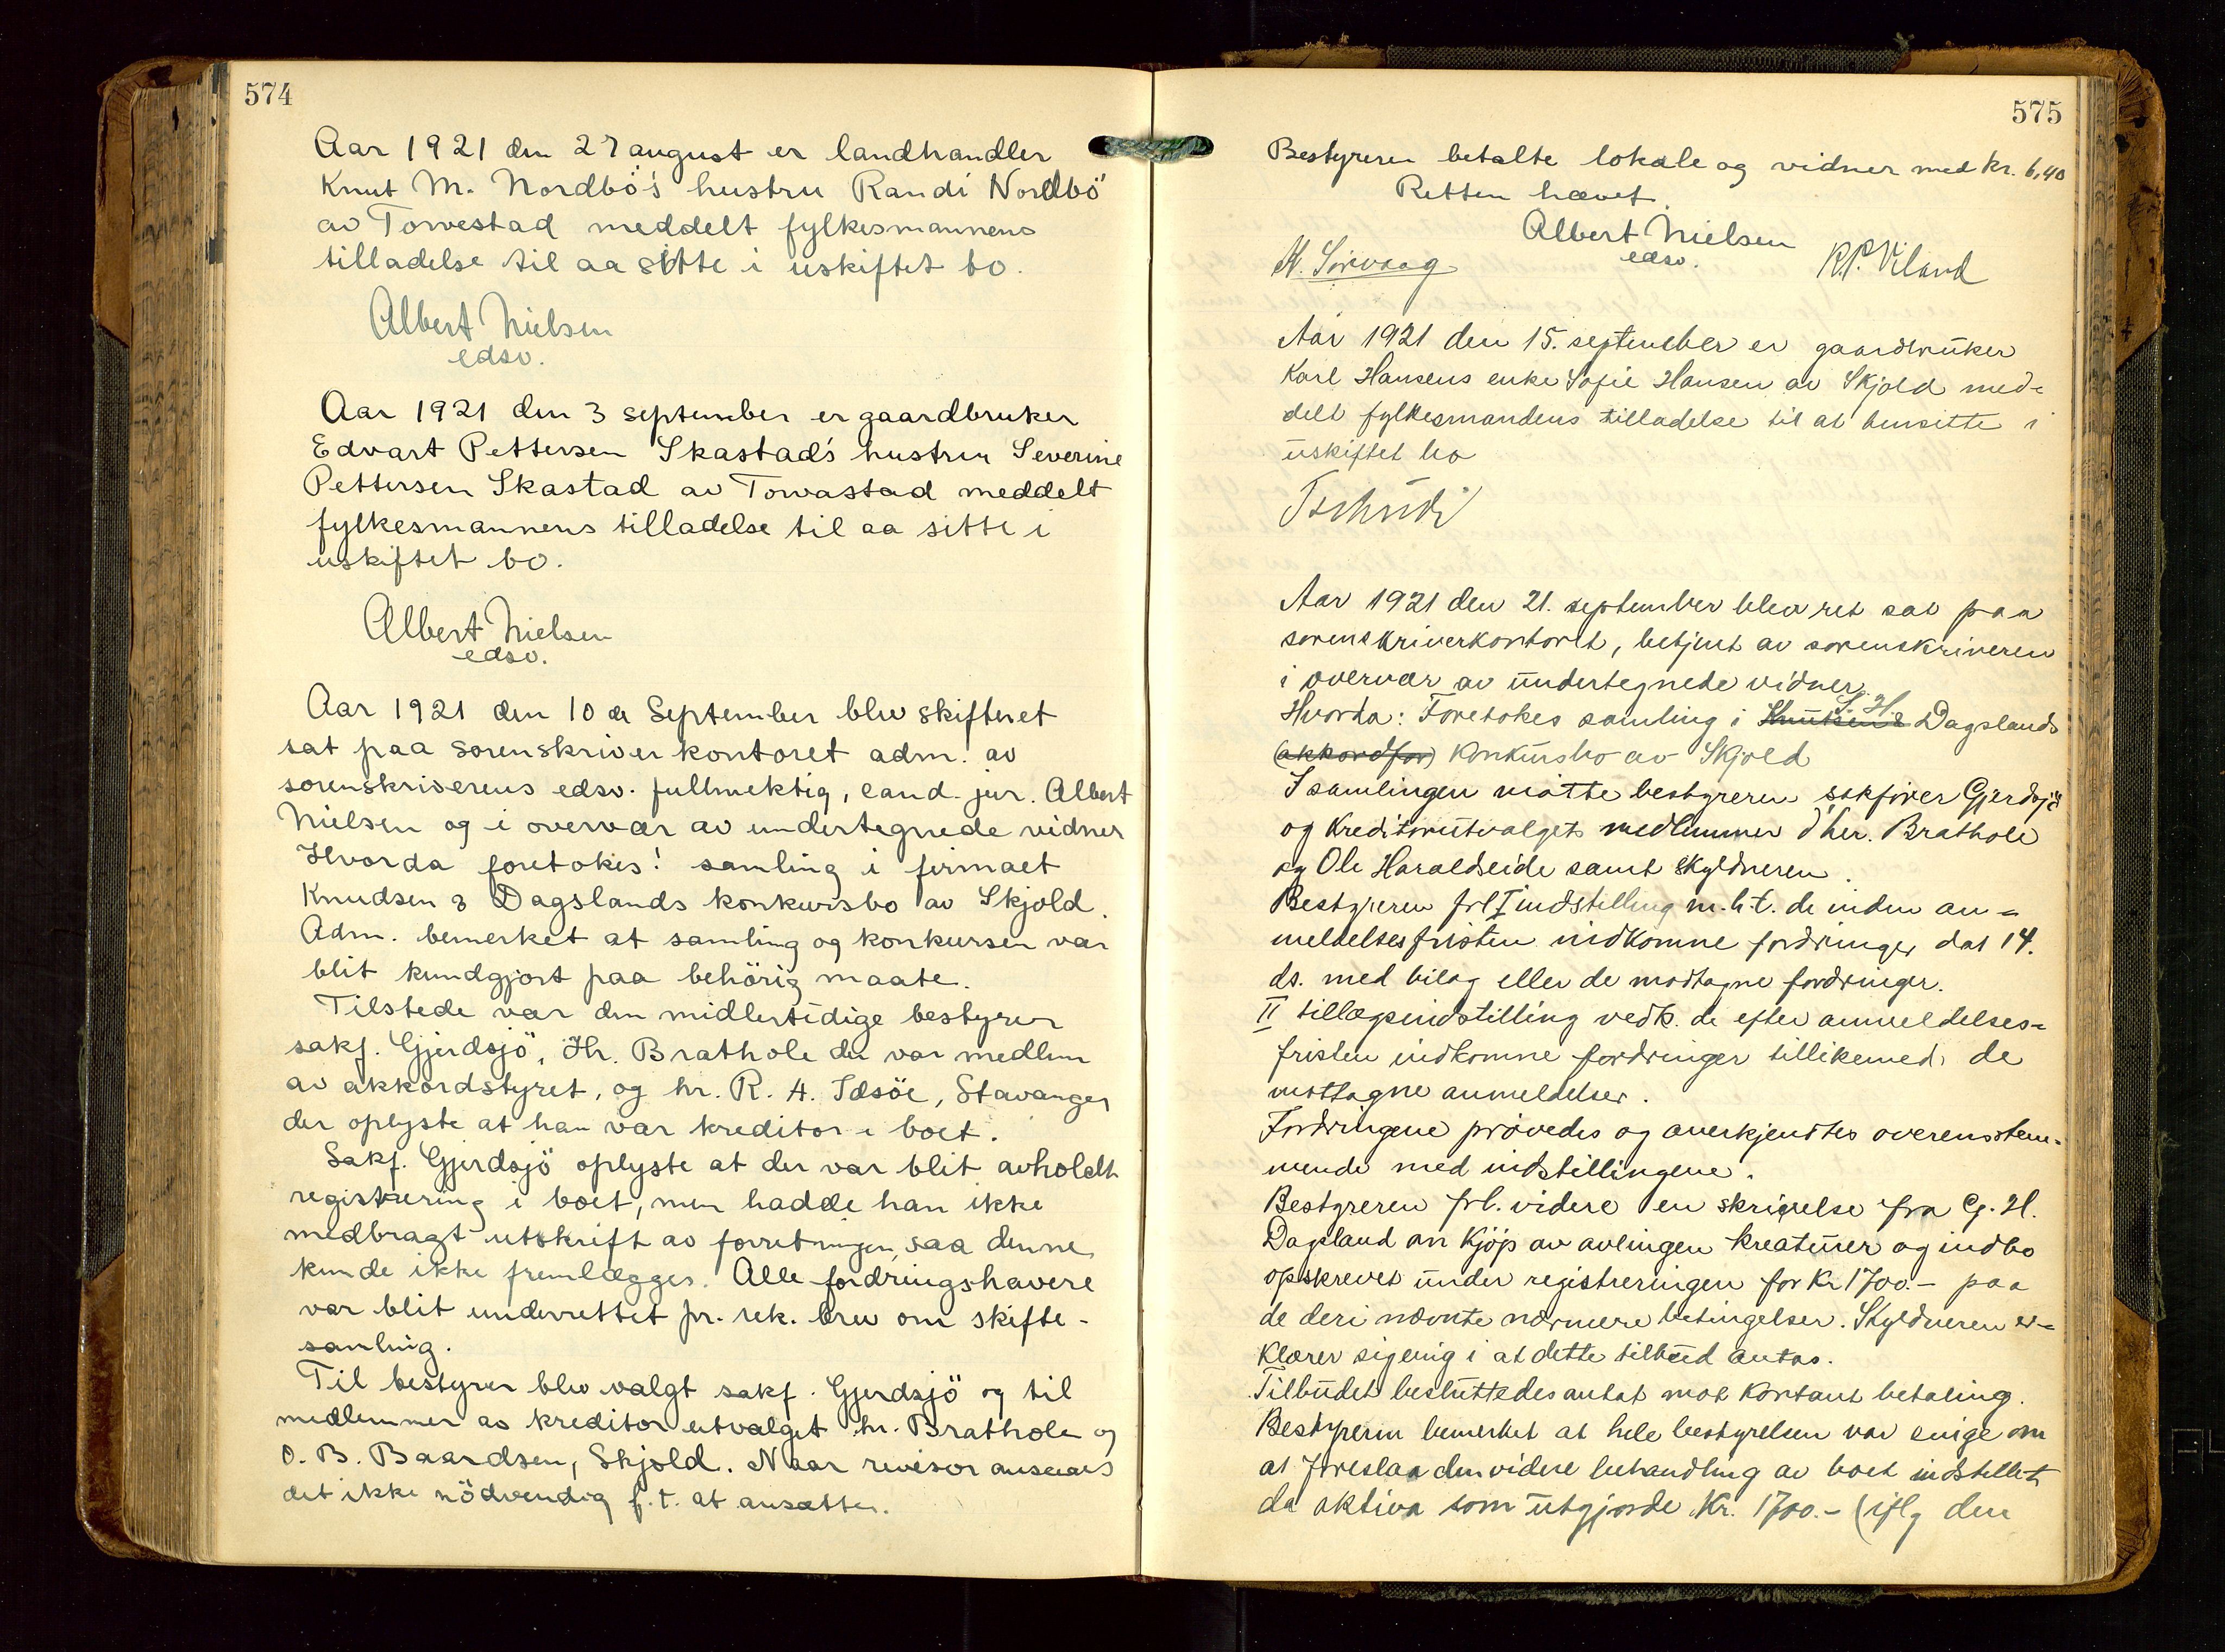 574
Aar 1921 den 27 august er landhandler
Knut M. Nordbö's hustru Randi Nordbö
av Torvestad meddelt fylkesmannens
tilladelse til aa sitte i uskiftet bo.
Albert Nielsen
edsv.
Aar 1921 den 3 september er gaardbruker
Edvart Pettersen Skastad's hustru Severine
Pettersen Skastad av Torvastad meddelt
fylkesmannens tilladelse til aa sitte i
uskiftet bo.
Albert Nielsen
edsv.
Aar 1921 den 10 de September blev skifteret
sat paa sorenskriverkontoret adm. av
sorenskriverens edsv. fullmektig, cand. jur. Albert
Nielsen og i overvær av undertegnede vidner
Hvorda foretokes! samling i firmaet
Knudsen & Dagslands konkursbo av Skjold.
Adm. bemerket at samling og konkursen var
blit kundgjort paa behörig maate.
Tilstede var den midlertidige bestyrer
sakf. Gjerdsjö, Hr. Brathole der var medlem
av akkordstyret, og hr. R. A. Idsöe, Stavanger
der oplyste at han var kreditor i boet.
Sakf. Gjerdsjö oplyste at der var blit avholdt
registrering i boet, men hadde han ikke
medbragt utskrift av forretningen, saa denne
kunde ikke fremlægges. Alle fordringshavere
var blit underrettet pr. rek. brev om skifte-
samling.
Til bestyrer blev valgt sakf. Gjerdsjö og til
medlemmer av kreditorutvalget hr. Brathole og
O. B. Baardsen, Skjold. Noar revisor ansaaes
det ikke nödvendig f. t. at ansætte.
575
Bestyreren betalte lokale og vidner med kr. 6,40
Retten hævet.
Albert Nielsen
edsv.
K. Sörvaag
R.P. Viland
Aar 1921 den 15. september er gaardbruker
Karl Hansens enke Sofie Hansen av Skjold med-
delt fylkesmandens tilladelse til at hensitte i
uskiftet bo
Tschudi
Aar 1921 den 21. september blev ret sat paa
sorenskriverkontoret, betjent av sorenskriveren
i overvær av undertegnede vidner.
Hvorda: Foretokes samling i Knutsen & G. H. Dagslands
(akkordfor) konkursbo av Skjold
I samlingen møtte bestyreren sakfører Gjerdsjø
og kreditorutvalgets medlemmer d'her. Brathole
og Ole Haraldseide samt skyldneren.
Bestyreren frl. I indstilling m.h.t. de inden an-
meldelsesfristen indkomne fordringer dat 14.
ds. med bilag eller de modtagne fordringer.
II tillægsindstilling vedk. de efter anmeldelses-
fristen indkomne fordringer tillikemed de
mottagne anmeldelser.
Fordringene prøvedes og anerkjendtes overensstem-
mende med indstillingene.
Bestyreren frl. videre en skrivelse fra G. H.
Dagsland om kjøp av avlingen kreaturer og indbo
opskrevet under registreringen for Kr 1700.- paa
de deri nævnte nærmere betingelser. Skyldneren er-
klærer sig enig i at dette tilbud antas.
Tilbudet besluttedes antat mot kontant betaling.
Bestyreren bemerket at hele bestyrelsen var enige om
at foreslaa den videre behandling av boet indstillet
da aktiva som utgjorde Kr. 1700.- (iflg den